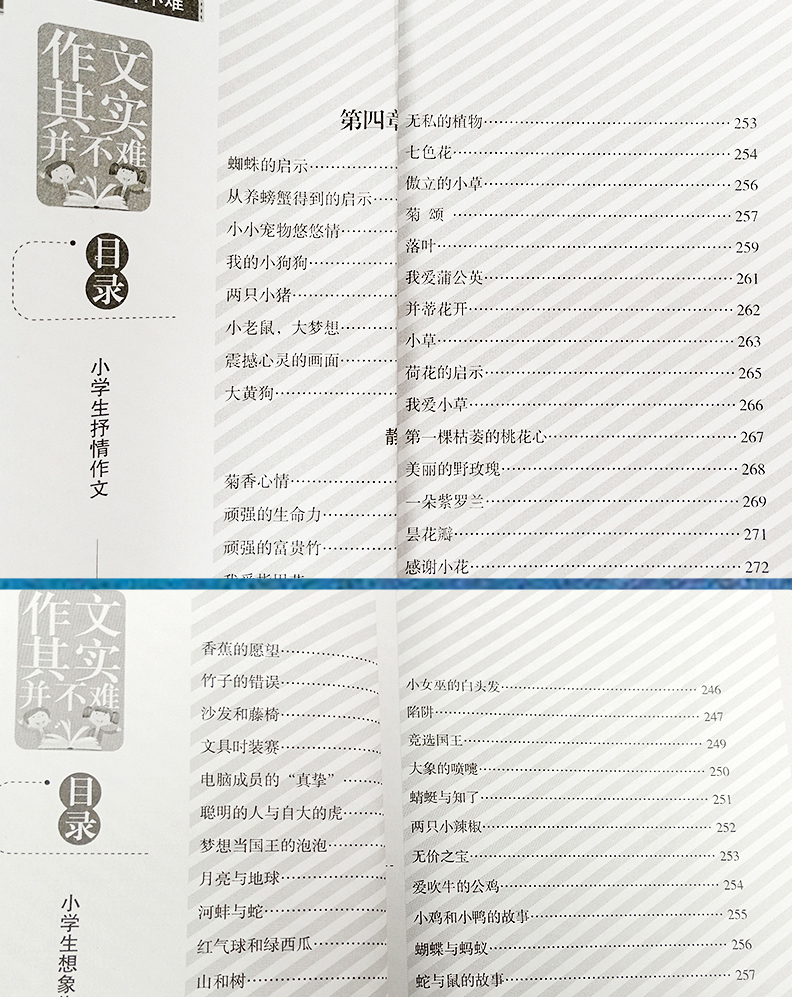 不难
作文
其实
并不难
目录
小学生抒情作文
第四章
蜘蛛的启示
从养螃蟹得到的启示
小小宠物悠悠情
我的小狗狗
两只小猪
小老鼠，大梦想
震撼心灵的画面
大黄狗
静
菊香心情
顽强的生命力
顽强的富贵竹
无私的植物 253
七色花 254
傲立的小草 256
菊 颂 257
落叶 259
我爱蒲公英 261
并蒂花开 262
小草 263
荷花的启示 265
我爱小草 266
第一棵枯萎的桃花心 267
美丽的野玫瑰 268
一朵紫罗兰 269
昙花瓣 271
感谢小花 272
作文
其实
并不难
目录
小学生想象
香蕉的愿望
竹子的错误
沙发和藤椅
文具时装赛
电脑成员的“真挚”
聪明的人与自大的虎
梦想当国王的泡泡
月亮与地球
河蚌与蛇
红气球和绿西瓜
山和树
小女巫的白头发 246
陷阱 247
竞选国王 249
大象的喷嚏 250
蜻蜓与知了 251
两只小辣椒 252
无价之宝 253
爱吹牛的公鸡 254
小鸡和小鸭的故事 255
蝴蝶与蚂蚁 256
蛇与鼠的故事 257